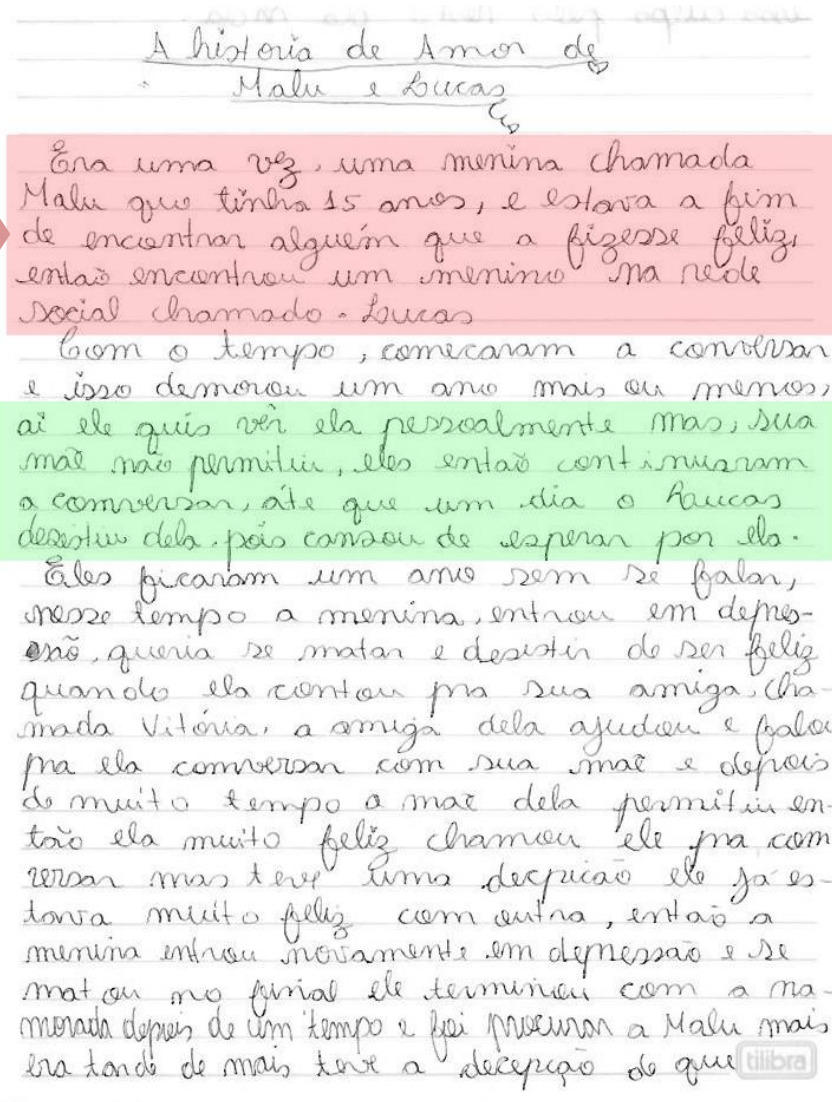 A historia de Amor de
Malu e Lucas
Era uma vez, uma menina chamada
Malu que tinha 15 anos, e estava a fim
de encontrar alguém que a fizesse feliz,
então encontrou um menino na rede
social chamado - Lucas
Com o tempo, comecaram a conversar
e isso demorou um ano mais ou menos,
ai ele quis ver ela pessoalmente mas, sua
mãe não permitiu, eles então continuaram
a conversar, até que um dia o Luucas
desistiu dela. pois cansou de esperar por ela.
Eles ficaram um ano sem se falar,
nesse tempo a menina, entrou em depres-
são, queria se matar e desistir de ser feliz
quando ela contou pra sua amiga, cha-
mada Vitória, a amiga dela ajudou e falou
pra ela conversar com sua mãe e depois
de muito tempo a mãe dela permitiu en-
tão ela muito feliz chamou ele pra com
versar mas teve uma decpicão ele já es-
tava muito feliz com outra, então a
menina entrou novamente em depressão e se
matou no finial ele terminou com a na-
morada depois de um tempo e foi procurar a Malu mais
era tarde de mais teve a decepção de que
tilibra